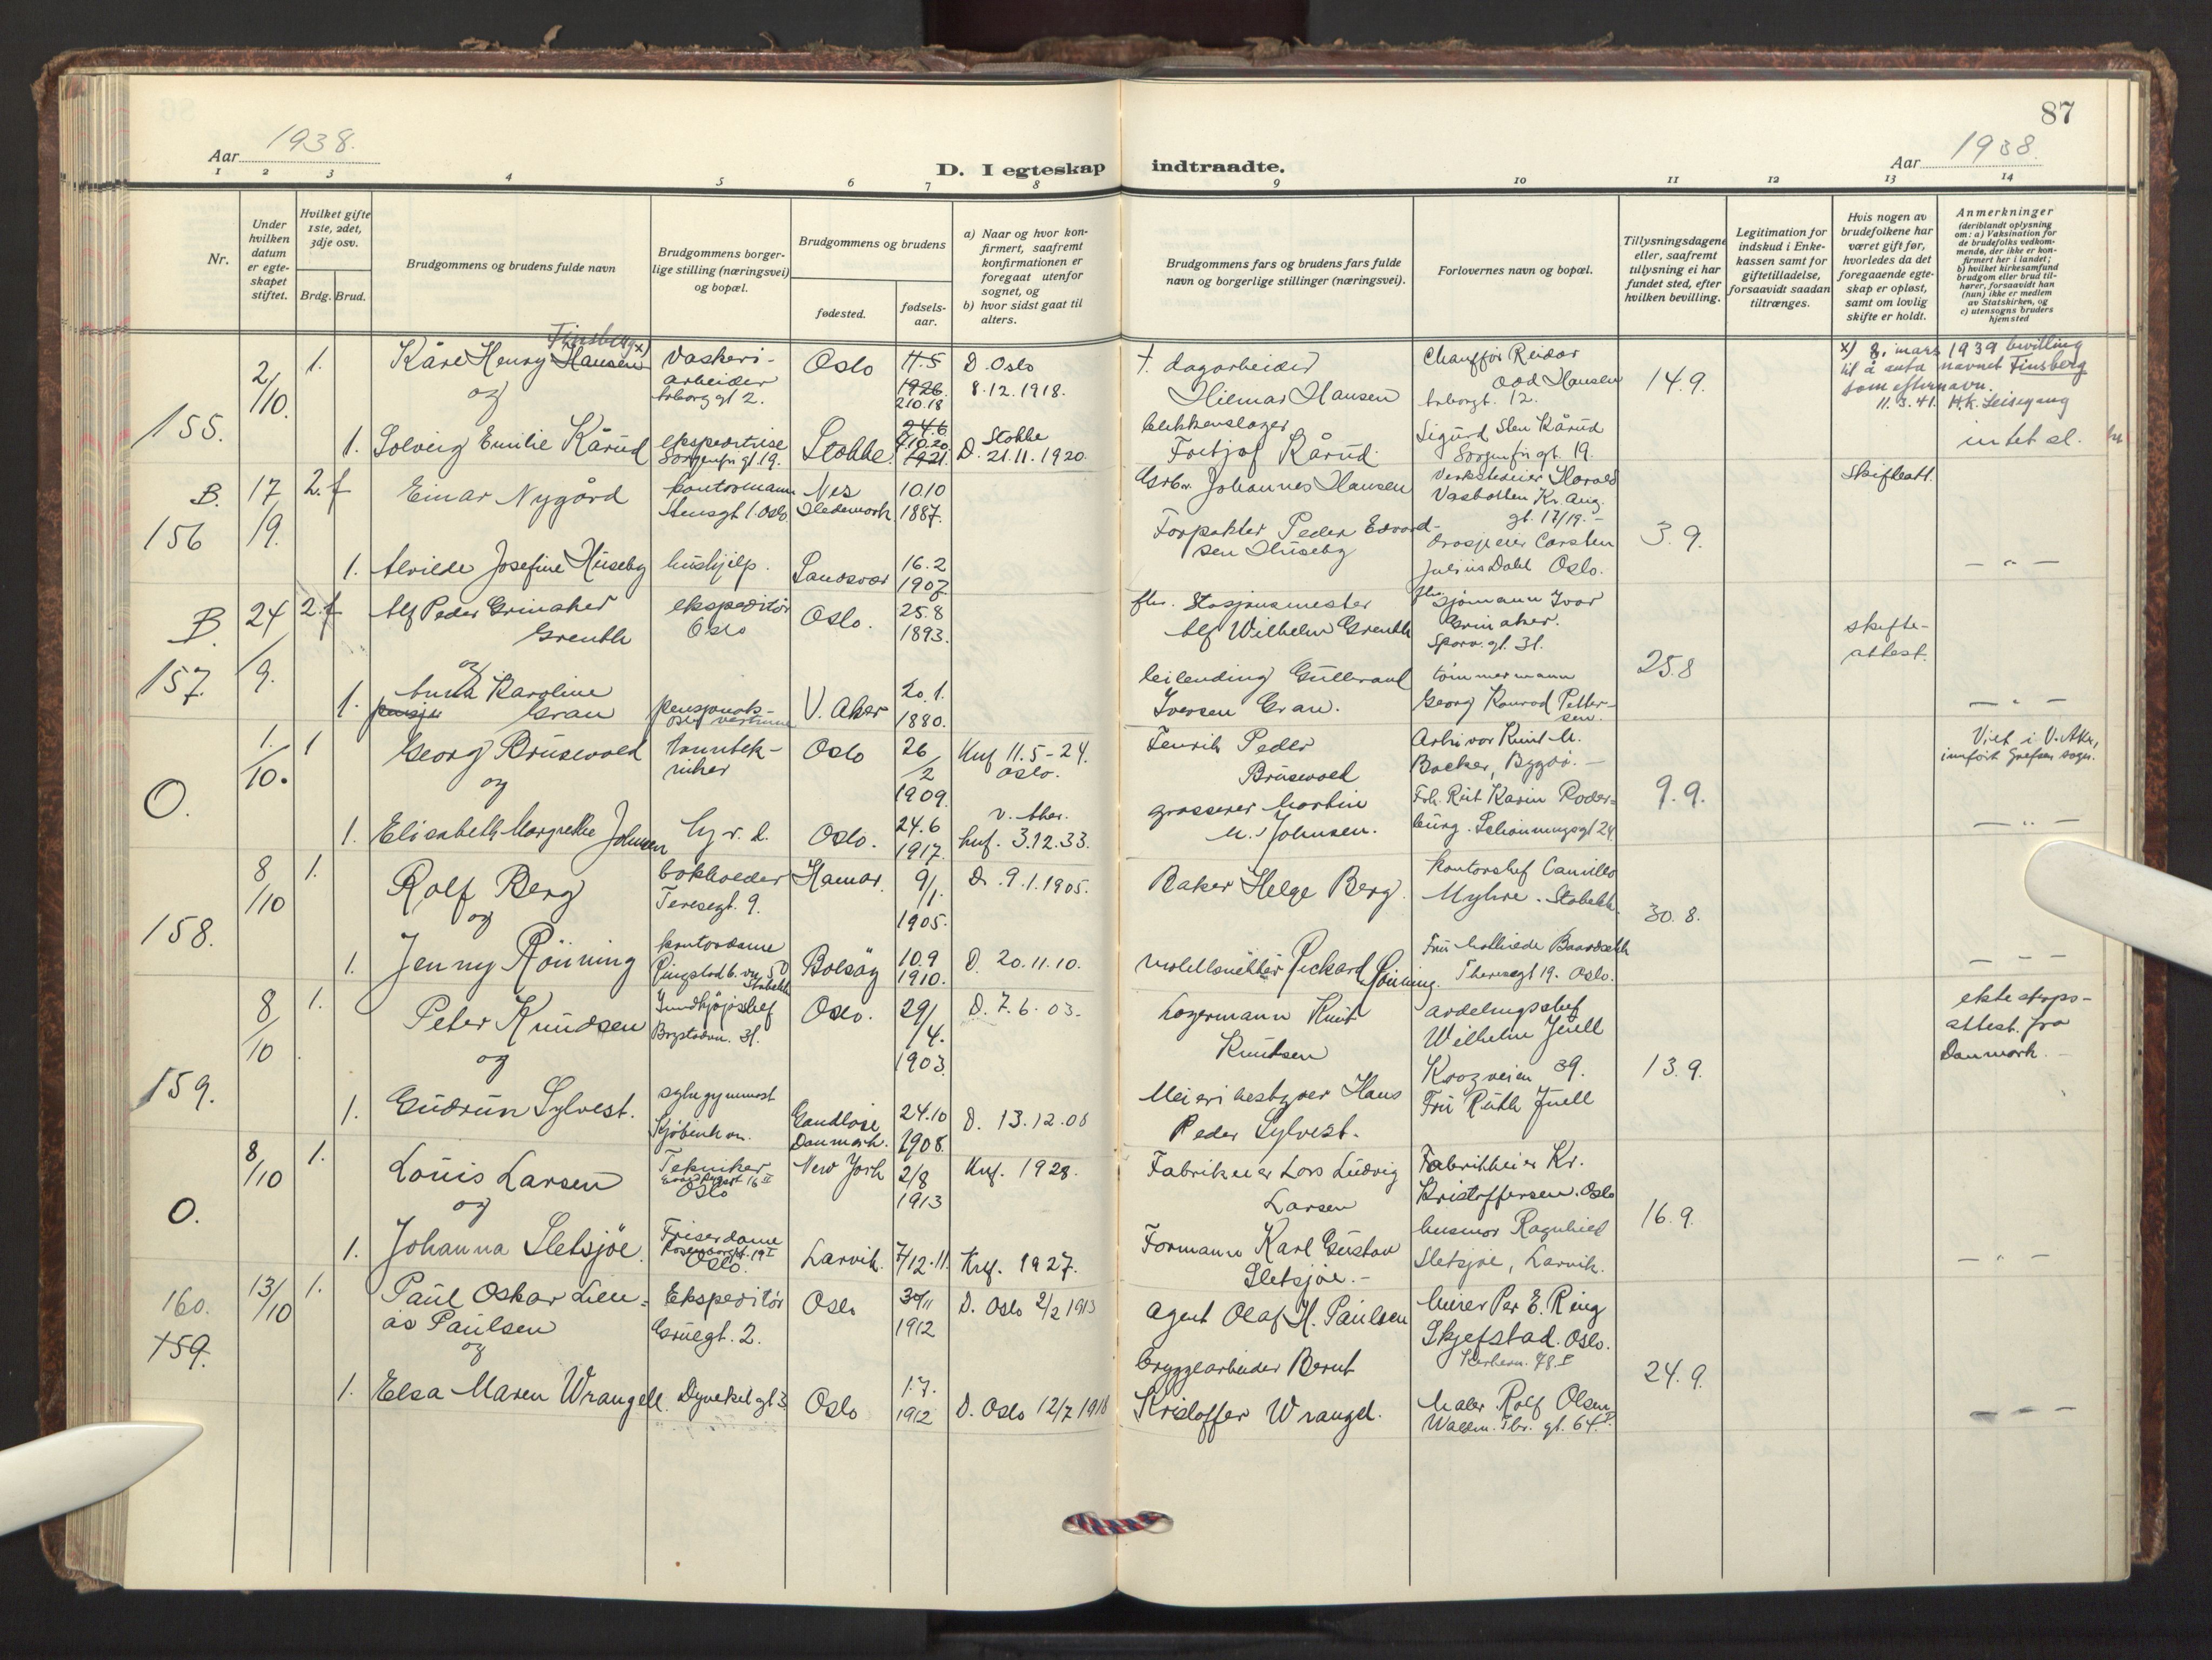 87
Aar 1938.
D. I egteskap indtraadte.
Aar 1938.
1 2 3 4 5 6 7 8 9 10 11 12 13 14
Nr.
Under hvilken datum er egteskapet stiftet.
Hvilket gifte 1ste, 2det, 3dje osv.
Brdg. Brud.
Brudgommens og brudens fulde navn
Brudgommens borgerlige stilling (næringsvei) og bopæl.
Brudgommens og brudens
fødested.
fødselsaar.
a) Naar og hvor konfirmert, saafremt konfirmationen er foregaat utenfor sognet, og
b) hvor sidst gaat til alters.
Brudgommens fars og brudens fars fulde navn og borgerlige stillinger (næringsvei).
Forlovernes navn og bopæl.
Tillysningsdagene eller, saafremt tillysning ei har fundet sted, efter hvilken bevilling.
Legitimation for indskud i Enkekassen samt for giftetilladelse, forsaavidt saadan tiltrænges.
Hvis nogen av brudefolkene har været gift før, hvorledes da det foregaaende egteskap er opløst, samt om lovlig skifte er holdt.
Anmerkninger
(deriblandt oplysning om: a) Vaksination for de brudefolks vedkommende, der ikke er konfirmert her i landet; b) hvilket kirkesamfund brudgom eller brud tilhører, forsaavidt han (hun) ikke er medlem av Statskirken, og c) utensogns bruders hjemsted
155.
2/10.
1.
Finsberg x)
Kåre Henry Hansen
og
Vaskeri-
arbeider
gt 2.
Oslo
11.5
1926.
2.10.18
D. Oslo
8.12.1918.
† dagarbeider
Hilmar Hansen
Chauffør Reidar
Odd Hansen
gt. 12.
14.9.
x) 8. mars 1939 bevilling
til å anta navnet Finsberg
som efternavn.
11.3.41. H.K. Leisegang
1. Solveig Emilie Kårud
ekspeditrise
Sorgenfri gt. 19.
Stokke.
24.6
4.10.20
1921.
Stokke
D. 21.11.1920.
blikkenslager
Fritjof Kårud.
Sigurd Sten Kårud
Sorgenfri gt. 19.
intet al.
B.
156
17/9.
2. f
Einar Nygård
kontormann
Stensgt 1. Oslo
Nes
Hedemark
10.10
1887.
Gårbr. Johannes Hansen
Verksteieier Harald
Vasbotten Kr. Aug.
gt. 17/19.-
Skifteatt.
3.9.
1. Alvilde Josefine Huseby
hushjelp.
Sandsvær
16.2
1907
Forpakter Peder Edvard-
sen Huseby
Drosjeeier Carsten
Julius Dahl Oslo.
- " -
B.
157.
24/9.
2. f
Alf Peder Grinaker
Grenth
og
ekspeditør
Oslo
Oslo.
25.8
1893.
fhv. Stasjonsmester
Alf Wilhelm Grenth
fhv. Sjømann Ivar
Grinaker.
Sporv. gt. 31.
25.8
skifte-
attest.
1. Anna Karoline
Gran
pensjonats-
vertinne
V. Aker
20.1.
1880.
leilending Gulbrand
Iversen Gran.
tømmermann
Georg Konrad Petter-
sen.
- " -
O.
1./10.
1
Georg Brusevold
og
tanntek-
niker
Oslo
26/2
1909.
Knf 11.5-24.
Oslo.
Fenrik Peder
Brusevold
Arkivar Knut M.
Backer, Bygdø.-
9.9.
Viet i V. Aker,
innført Grefsen sogn.
1. Elisabeth Margrethe Johnsen
Oslo.
24.6
1917.
V. Aker.
knf. 3.12.33.
grosserer Martin
M. Johnsen.
Frk. Rut Karin Roder-
burg. Schønningsgt 24
- " -
158.
8/10
1.
Rolf Berg
og
bokholder
Teresegt. 9.
Hamar.
9/1.
1905.
D. 9.1.1905.
Baker Helge Berg.
kontorchef Camillo
Myhre. Stabekk.
30.8.
1. Jenny Rönning
kontordame
Ringstadb. vn 50
Stabekk
Bolsöy
10.9
1910.
D. 20.11.10.
Rickard Rönning.
Fru Mathilde
Theresegt 19. Oslo.
- - -
159.
8/10
1.
Peter Knudsen
og
Innkjøpschef
31.
Oslo.
29/4.
1903.
D. 7.6.03.
Lagermann Knut
Knudsen
avdelingschef
Wilhelm Juell
Krogveien 39.
13.9.
ekteskaps-
attest. fra
Danmark.-
1. Gudrun Sylvest.
sykegymnast
Kjøbenhavn.
Ganløse
Danmark.
24.10
1908.
D. 13.12.08
Meieribestyrer Hans
Peder Sylvest.
Fru Ruth Juell
O.
8/10
1.
Louis Larsen
og
Tekniker
Oslo
New York
2/8
1913
Knf. 1928.
Fabrikeier Lars Ludvig
Larsen
Fabrikkeier Kr.
Kristoffersen. Oslo
16.9.
1. Johanna Sletsjøe.
Friserdame
Rosenborggt. 19 I
Oslo.
Larvik.
7/12.11.
Knf. 1927.
Formann Karl Gustav
Sletsjøe.-
husmor Ragnhild
Sletsjøe, Larvik.
- " -
160.
159.
13/10
1.
Paul Oskar Lien-
ås Paulsen
og
Ekspeditør
Gruegt. 2.
Oslo
30/11
1912
D. Oslo 2/2 1913
Agent Olaf H. Paulsen
Murer Per E. Ring
Skjefstad. Oslo.
24.9.
1. Elsa Maren Wrangell.
Dyvekes gt 3
Oslo
1.7.
1912
D. Oslo 12/7 1918
bryggearbeider Bernt
Kristoffer Wrangel.
Maler Rolf Olsen
Waldm. Thr. gt. 64 I.
- - -